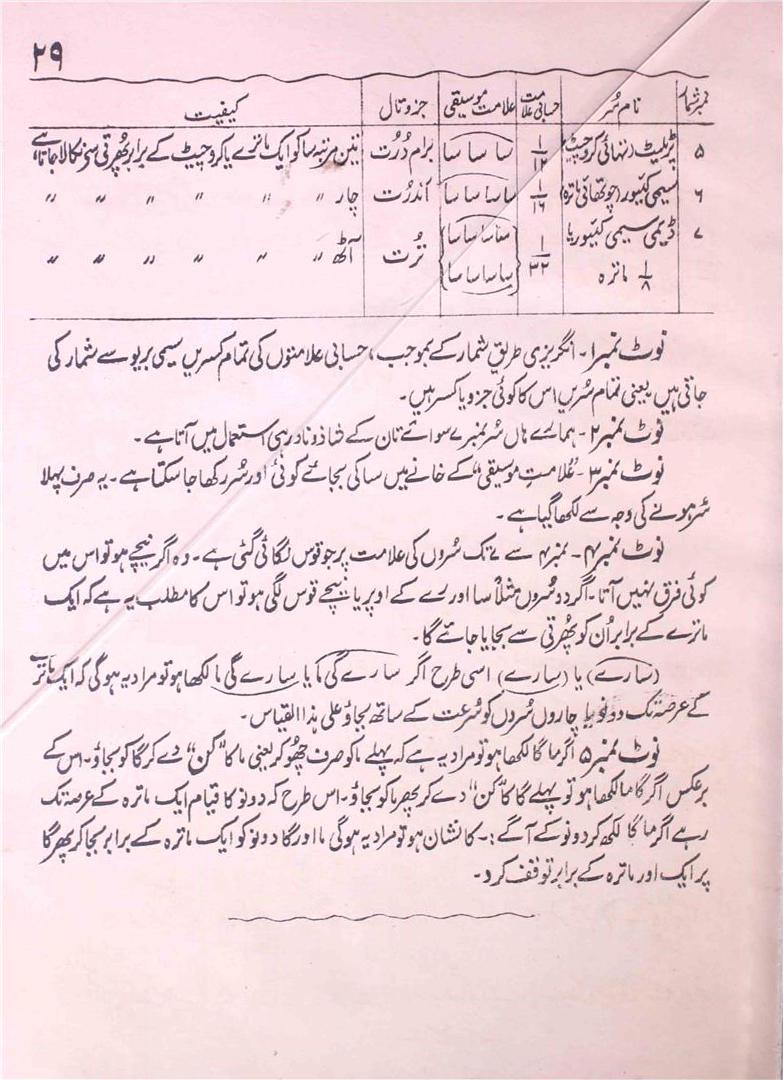 ۲۹
نمبر شمار نام سُر حسابی علامت علامت موسیقی جزو تال کیفیت
۵ ٹرپلیٹ (تہائی کروچیٹ) ۱/۱۲ سا سا سا برام دُرت تین مرتبہ سا کو ایک ماترے یا کروچیٹ کے برابر پھُرتی سے نکالا جاتا ہے
۶ سیمی کئیور (چوتھائی ماترہ) ۱/۱۶ سا سا سا سا اَندُرت چار " " " " " "
۷ ڈیمی سیمی کئیور یا ۱/۳۲ سا سا سا سا تُرت آٹھ " " " " " "
۱/۸ ماترہ سا سا سا سا
نوٹ نمبر۱۔ انگریزی طریقِ شمار کے بموجب، حسابی علامتوں کی تمام کسریں سیمی بریو سے شمار کی
جاتی ہیں یعنی تمام سُریں اس کا کوئی جزو یا کسر ہیں۔
نوٹ نمبر۲۔ ہمارے ہاں سُر نمبر ۷ سوائے تان کے شاذ و نادر ہی استعمال میں آتا ہے۔
نوٹ نمبر۳۔ "علامتِ موسیقی" کے خانے میں سا کی بجائے کوئی اور سُر رکھا جا سکتا ہے۔ یہ صرف پہلا
سُر ہونے کی وجہ سے لکھا گیا ہے۔
نوٹ نمبر۴۔ نمبر ۴ سے ۷ تک سُروں کی علامت پر جو قوس لگائی گئی ہے۔ وہ اگر نیچے ہو تو اس میں
کوئی فرق نہیں آتا۔ اگر دو سُروں مثلاً سا اور رے کے اوپر یا نیچے قوس لگی ہو تو اس کا مطلب یہ ہے کہ ایک
ماترے کے برابر اُن کو پھُرتی سے بجایا جائے گا۔
(سارے) یا (سارے) اسی طرح اگر سارے گی ما یا سارے گی ما لکھا ہو تو مراد یہ ہو گی کہ ایک ماترے
کے عرصہ تک دونو یا چاروں سُروں کو سُرعت کے ساتھ بجاؤ علیٰ ہذا القیاس۔
نوٹ نمبر ۵ اگر ما گا لکھا ہو تو مراد یہ ہے کہ پہلے ما کو صرف چھُو کر یعنی ما کا "کن" دے کر گا کو بجاؤ۔ اس کے
برعکس اگر گا ما لکھا ہو تو پہلے گا کا "کن" دے کر پھر ما کو بجاؤ۔ اس طرح کہ دونو کا قیام ایک ماترہ کے عرصہ تک
رہے اگر ما گا لکھ کر دونو کے آگے :- کا نشان ہو تو مراد یہ ہو گی ما اور گا دونو کو ایک ماترہ کے برابر بجا کر پھر گا
پر ایک اور ماترہ کے برابر توقف کرد۔